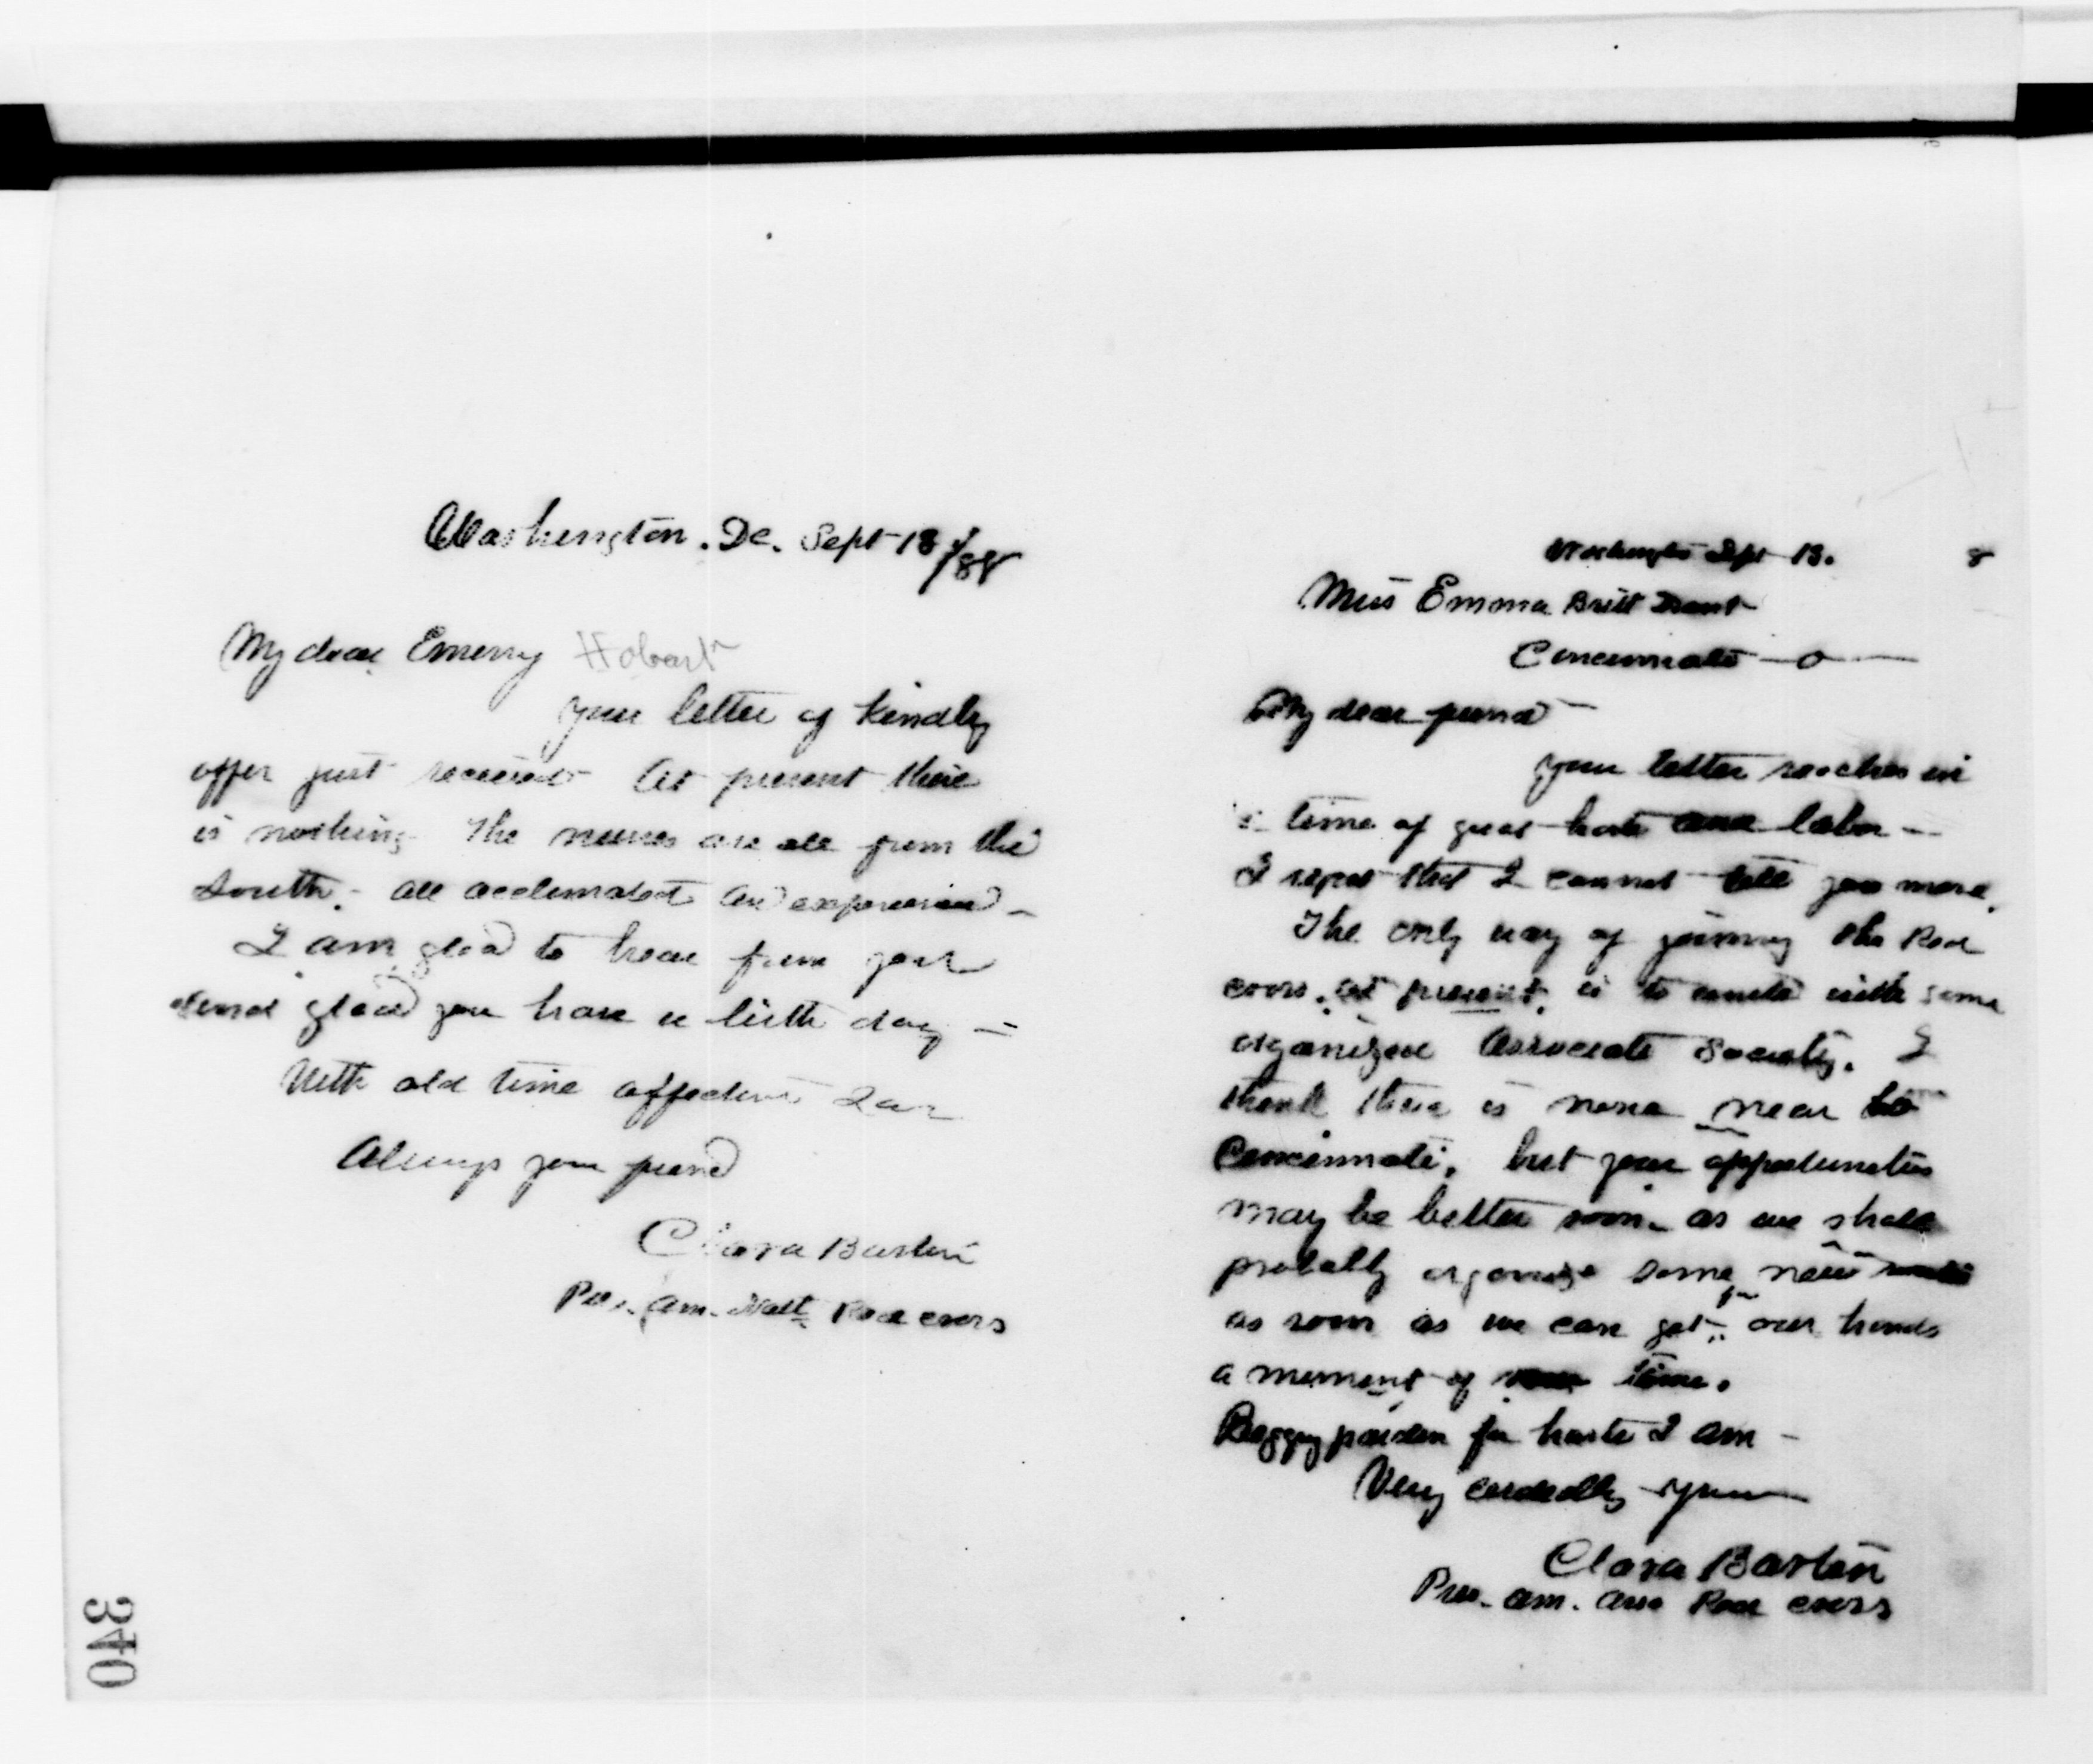 Washington. Dc. Sept 18/88
My dear Emery Hobart
your letter of kindly
offer just received At present there
is nothing The nurses are all from the
South. - all acclimated and experienced -
I am glad to hear from you
and glad you have a birth day -
With old time affection I am
Always your friend
Clara Barton
Pres. Am. Natl. Red cross
340
Washington Sept 13. 8
Miss Emma Britt
Cincinnati - O -
My dear friend -
your letter reaches in
time of great haste and labor -
I regret that I cannot tell you more.
The only way of joining the Red
cross, at present, is to unite with some
organized Associate Society. I
think there is none near to
Cincinnati, but your opportunities
may be better soon as we shall
probably organize some new
as soon as we can get for our hands
a moment of time.
Begging pardon for haste I am -
Very cordially yours
Clara Barton
Pres. Am. Asso Red cross